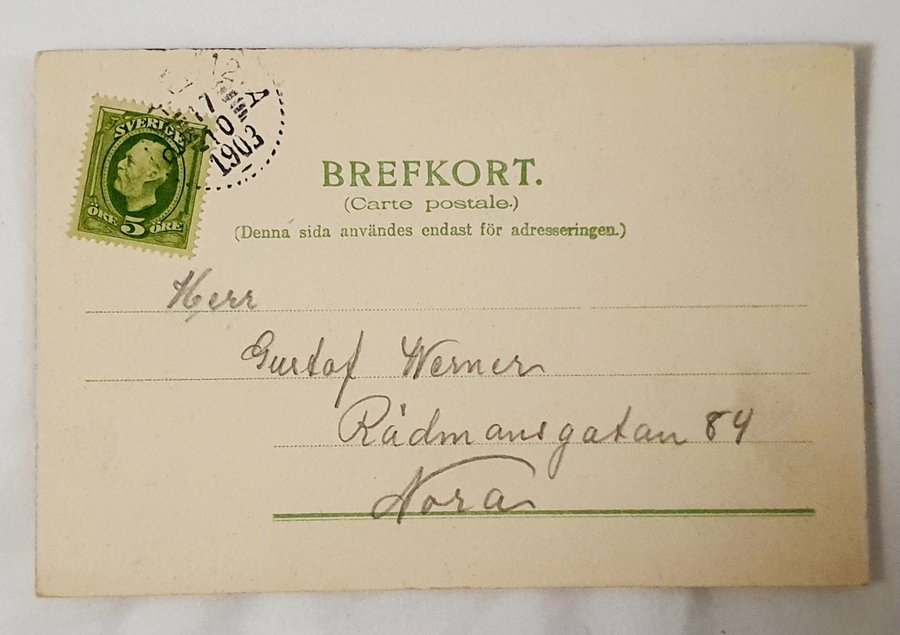 SVERIGE
ÖRE 5 ÖRE
17
10
1903
BREFKORT.
(Carte postale.)
(Denna sida användes endast för adresseringen.)
Herr
Gustaf Werner
Rådmansgatan 84
Nora